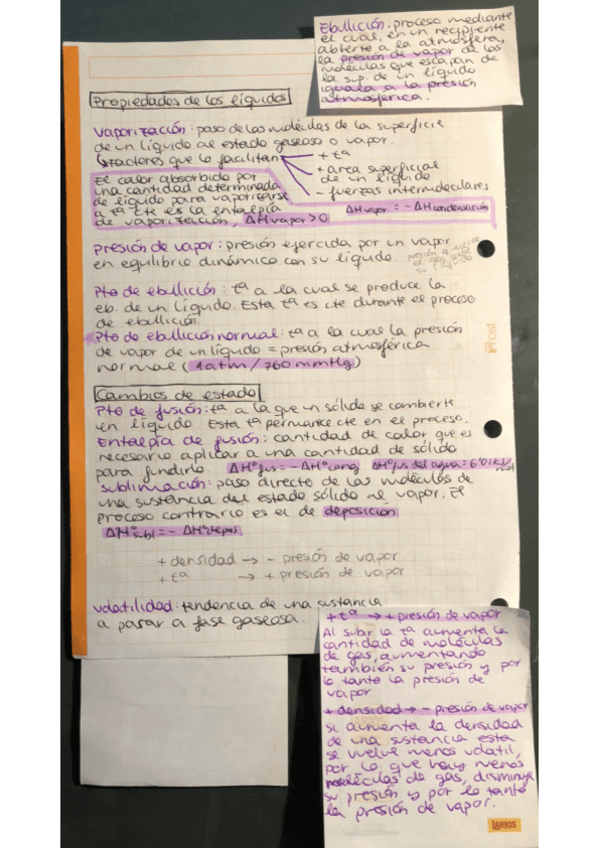 Ebullición: proceso mediante
el cual, en un recipiente
abierto a la atmósfera,
la presión de vapor de las
moléculas que escapan de
la sup. de un líquido
iguala a la presión
atmosférica.
Propiedades de los líquidos
Vaporización: paso de las moléculas de la superficie
de un líquido al estado gaseoso o vapor.
factores que lo facilitan
+ tª
+ área superficial
de un líquido
- fuerzas intermoleculares
El calor absorbido por
una cantidad determinada
de líquido para vaporizarse
a tª cte es la entalpía
de vaporización, ΔHvapor > 0
ΔHvapor = - ΔHcondensación
Presión de vapor: presión ejercida por un vapor
en equilibrio dinámico con su líquido.
Pto de ebullición: tª a la cual se produce la
eb. de un líquido. Esta tª es cte durante el proceso
de ebullición.
Pto de ebullición normal: tª a la cual la presión
de vapor de un líquido = presión atmosférica
normal (1 atm / 760 mmHg)
Cambios de estado
Pto de fusión: tª a la que un sólido se convierte
en líquido. Esta tª permanece cte en el proceso.
Entalpía de fusión: cantidad de calor que es
necesario aplicar a una cantidad de sólido
para fundirlo. ΔHºfus = - ΔHºcong ΔHºfus del agua = 6'01 KJ/mol
Sublimación: paso directo de las moléculas de
una sustancia del estado sólido al vapor. El
proceso contrario es el de deposición
ΔHºsubl = - ΔHºdepos
+ densidad → - presión de vapor
+ tª → + presión de vapor
Volatilidad: tendencia de una sustancia
a pasar a fase gaseosa.
+ tª → + presión de vapor
Al subir la tª aumenta la
cantidad de moléculas
de gas, aumentando
también su presión y por
lo tanto la presión de
vapor
+ densidad → - presión de vapor
Si aumenta la densidad
de una sustancia esta
se vuelve menos volátil,
por lo que hay menos
moléculas de gas, disminuye
su presión y por lo tanto
la presión de vapor.
LARIOS